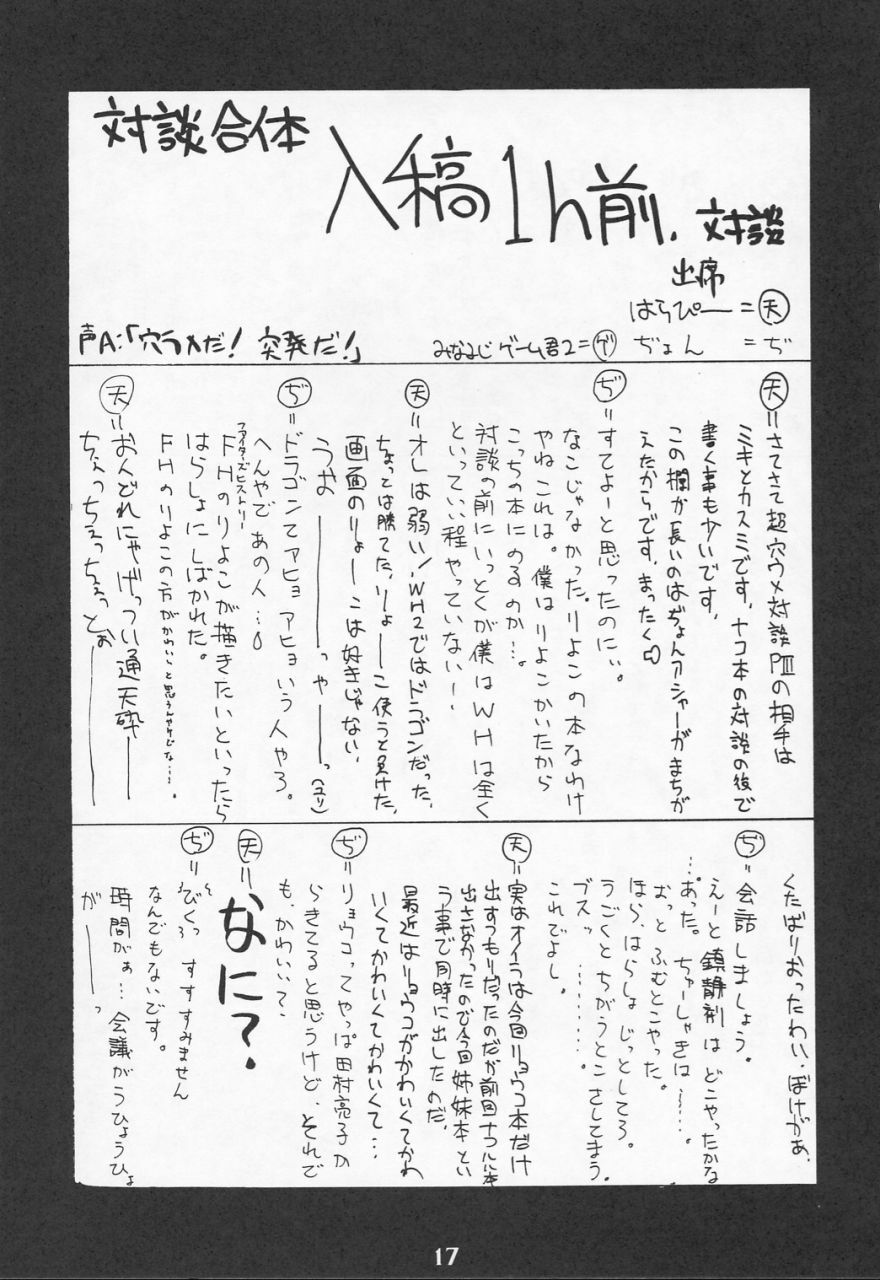 対談合体
入稿1h前.対談
出席
はらぴー=天
声A:「穴ウメだ! 突発だ!」
みなみじゲーム君2=ゲ ぢょん =ぢ
天=さてさて超穴ウメ対談PⅢの相手は
ミキとカスミです、ナコ本の対談の後で
書く事も少いです、
この欄が長いのはぢょんアシャーがまちが
えたからです、まったく
ぢ=すてよーと思ったのに、、
なこじゃなかった。りよこの本なわけ
やねこれは。僕はりよこかいたから
こっちの本にのるのか…。
対談の前にいっとくが僕はWHは全く
といっていい程やっていない〜、
天=オレは弱い!、WH2ではドラゴンだった、
ちょっとは勝てた、りょーこ使うと負けた、
画面のりょーこは好きじゃない、
うおーーーっゃーーっ(ユリ)
ぢ=ドラゴンてアヒョアヒョいう人やろ。
へんやであの人…
ファイターズヒストリー
FHのりよこが描きたいといったら
はらしょにしばかれた。
FHのりよこの方がかわいいと思うんやけどな…。
天=おんどれにゃげっつい通天砕ーー
ちぇっちぇっちぇっとぉーーー
くたばりおったわい、ぼけがぁ、
ぢ=会話しましょう。
えーと鎮静剤はどこやったかな
…あった。ちゅーしゃきは……。
おっとふむとこやった。
ほら、はらしょじっとしてろ。
うごくとちがうとこさしてしまう。
ブスッ………。
これでよし。
天=実はオイラは今回リョウコ本だけ
出すつもりだったのだが前回ナコルル本
出さなかったので今回姉妹本とい
う事で同時に出したのだ、
最近はリョウコがかわいくてかわ
いくてかわいくてかわいくて…
ぢ=リョウコってやっぱ田村亮子か
らきてると思うけど、それで
も、かわいい?、
天=なに?、
ぢ=びくっ すすすみません
なんでもないです。
時間がぁ…会議がうひょうひょ
がーーっ
17